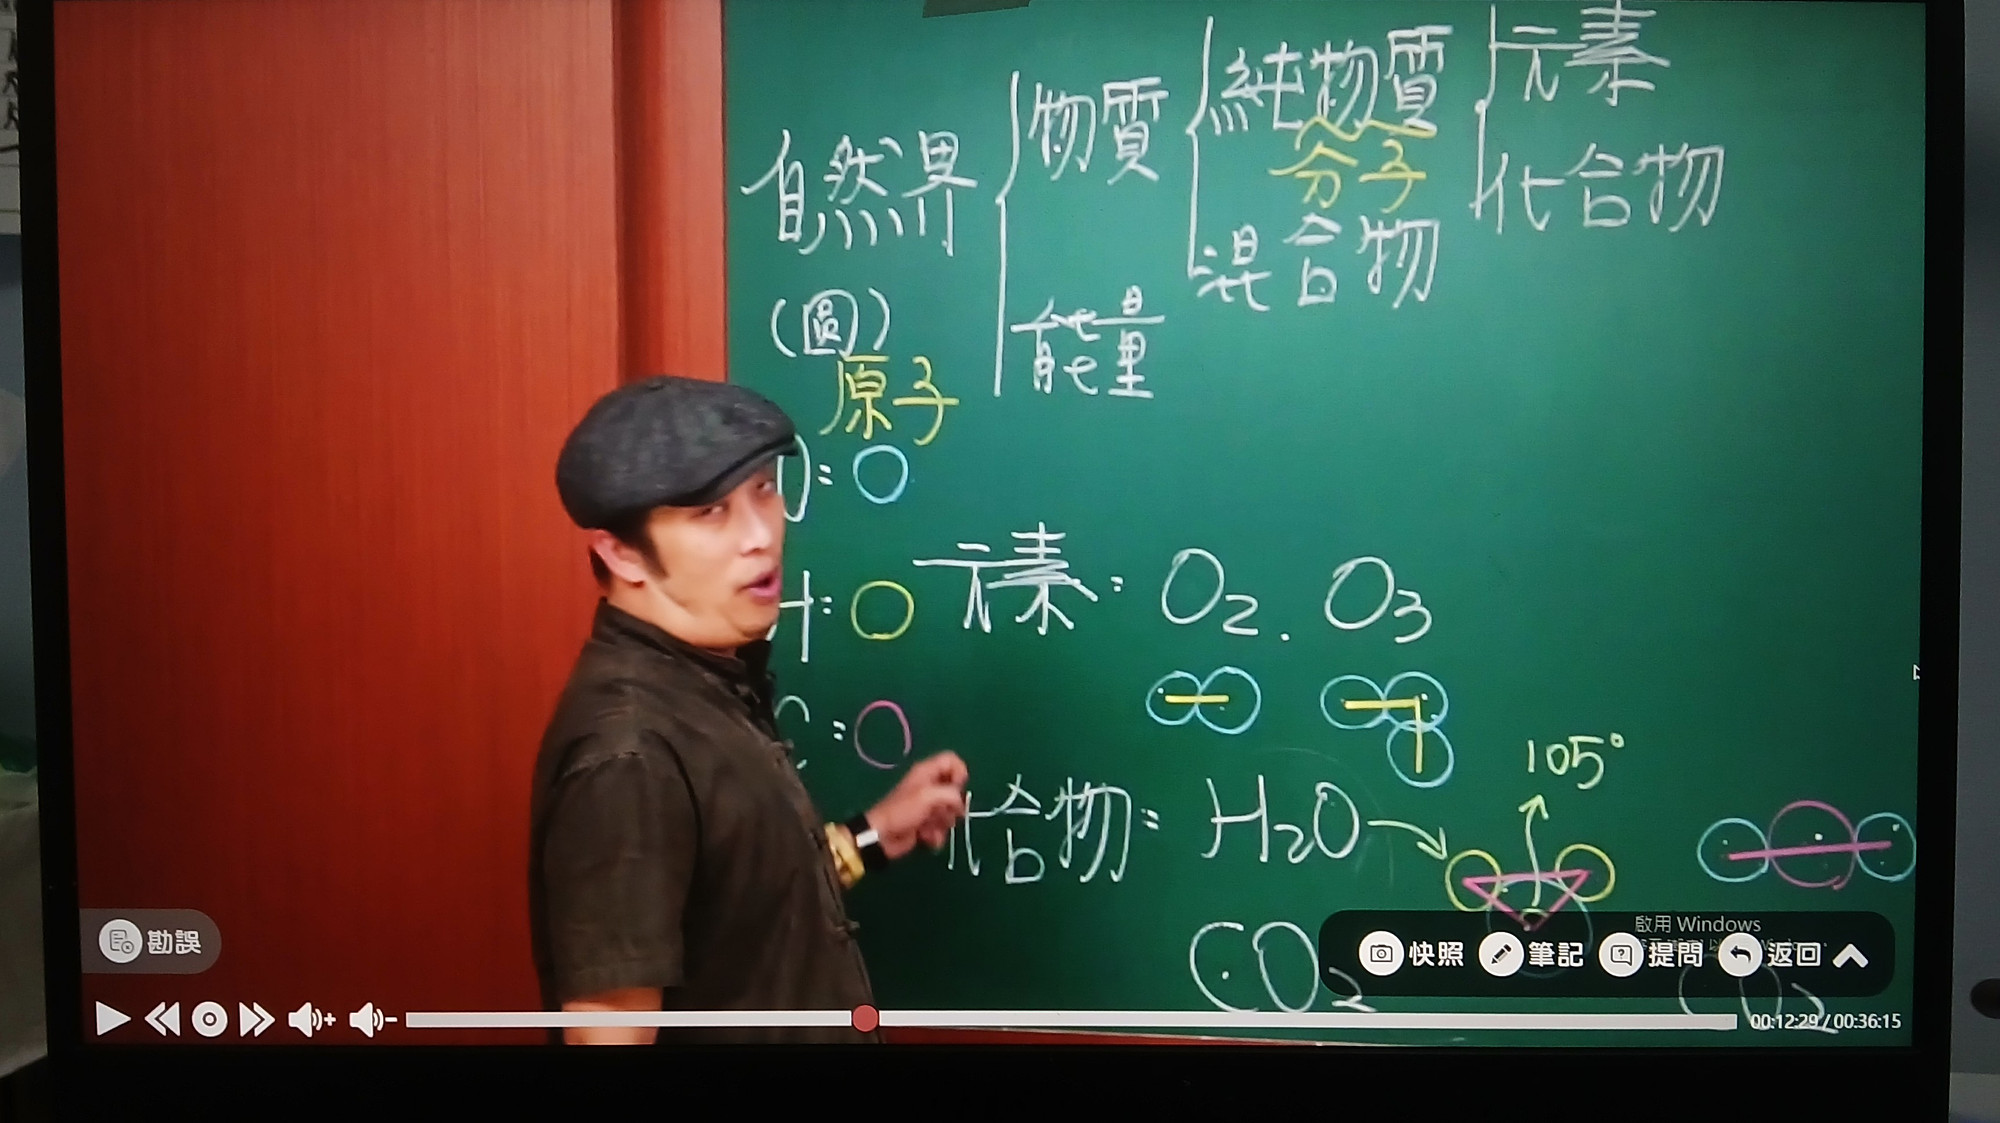 自然界
物質
能量
純物質
分子
混合物
元素
化合物
(圓)
原子
O:
H:
C:
元素: O₂. O₃
化合物: H₂O
105°
CO₂
CO₂
勘誤
啟用 Windows
快照 筆記 提問 返回
00:12:29 / 00:36:15